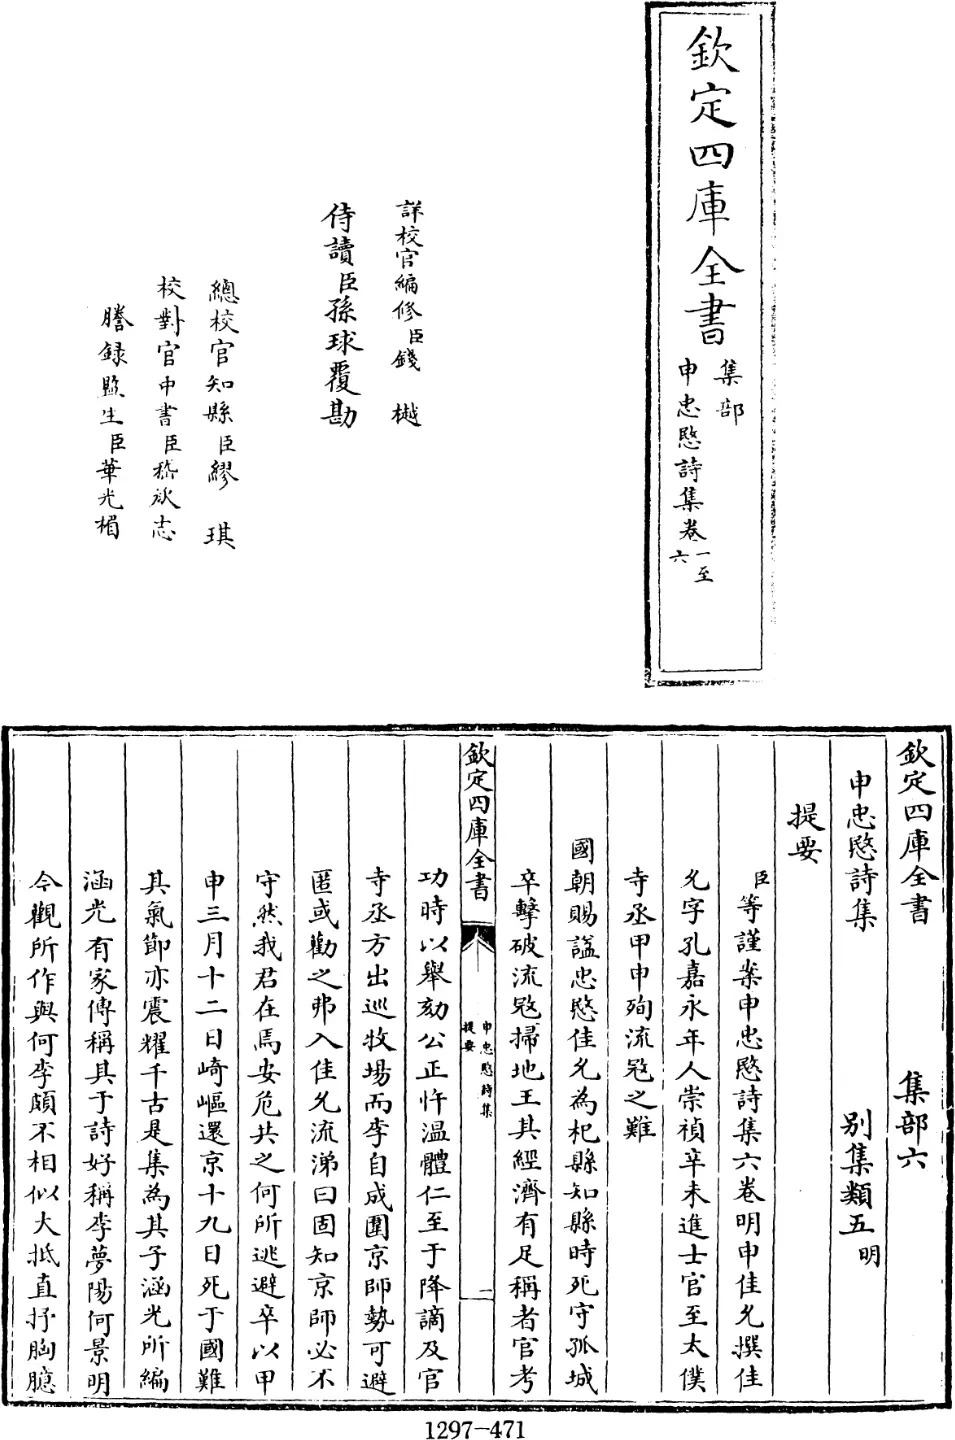 欽定四庫全書
集部
申忠愍詩集卷一至六
詳校官編修臣錢樾
侍讀臣孫球覆勘
總校官知縣臣繆琪
校對官中書臣嵇承志
謄録監生臣華光楣
欽定四庫全書 集部六
申忠愍詩集 别集類五明
提要
臣等謹案申忠愍詩集六卷明申佳允撰佳
允字孔嘉永年人崇禎辛未進士官至太僕
寺丞甲申殉流冦之難
國朝賜諡忠愍佳允為杞縣知縣時死守孤城
卒擊破流冦掃地王其經濟有足稱者官考
欽定四庫全書
申忠愍詩集
提要
一
功時以舉劾公正忤温體仁至于降謫及官
寺丞方出巡牧場而李自成圍京師勢可避
匿或勸之弗入佳允流涕曰固知京師必不
守然我君在焉安危共之何所逃避卒以甲
申三月十二日崎嶇還京十九日死于國難
其氣節亦震耀千古是集為其子涵光所編
涵光有家傳稱其于詩好稱李夢陽何景明
今觀所作與何李頗不相似大抵直抒胸臆
1297-471